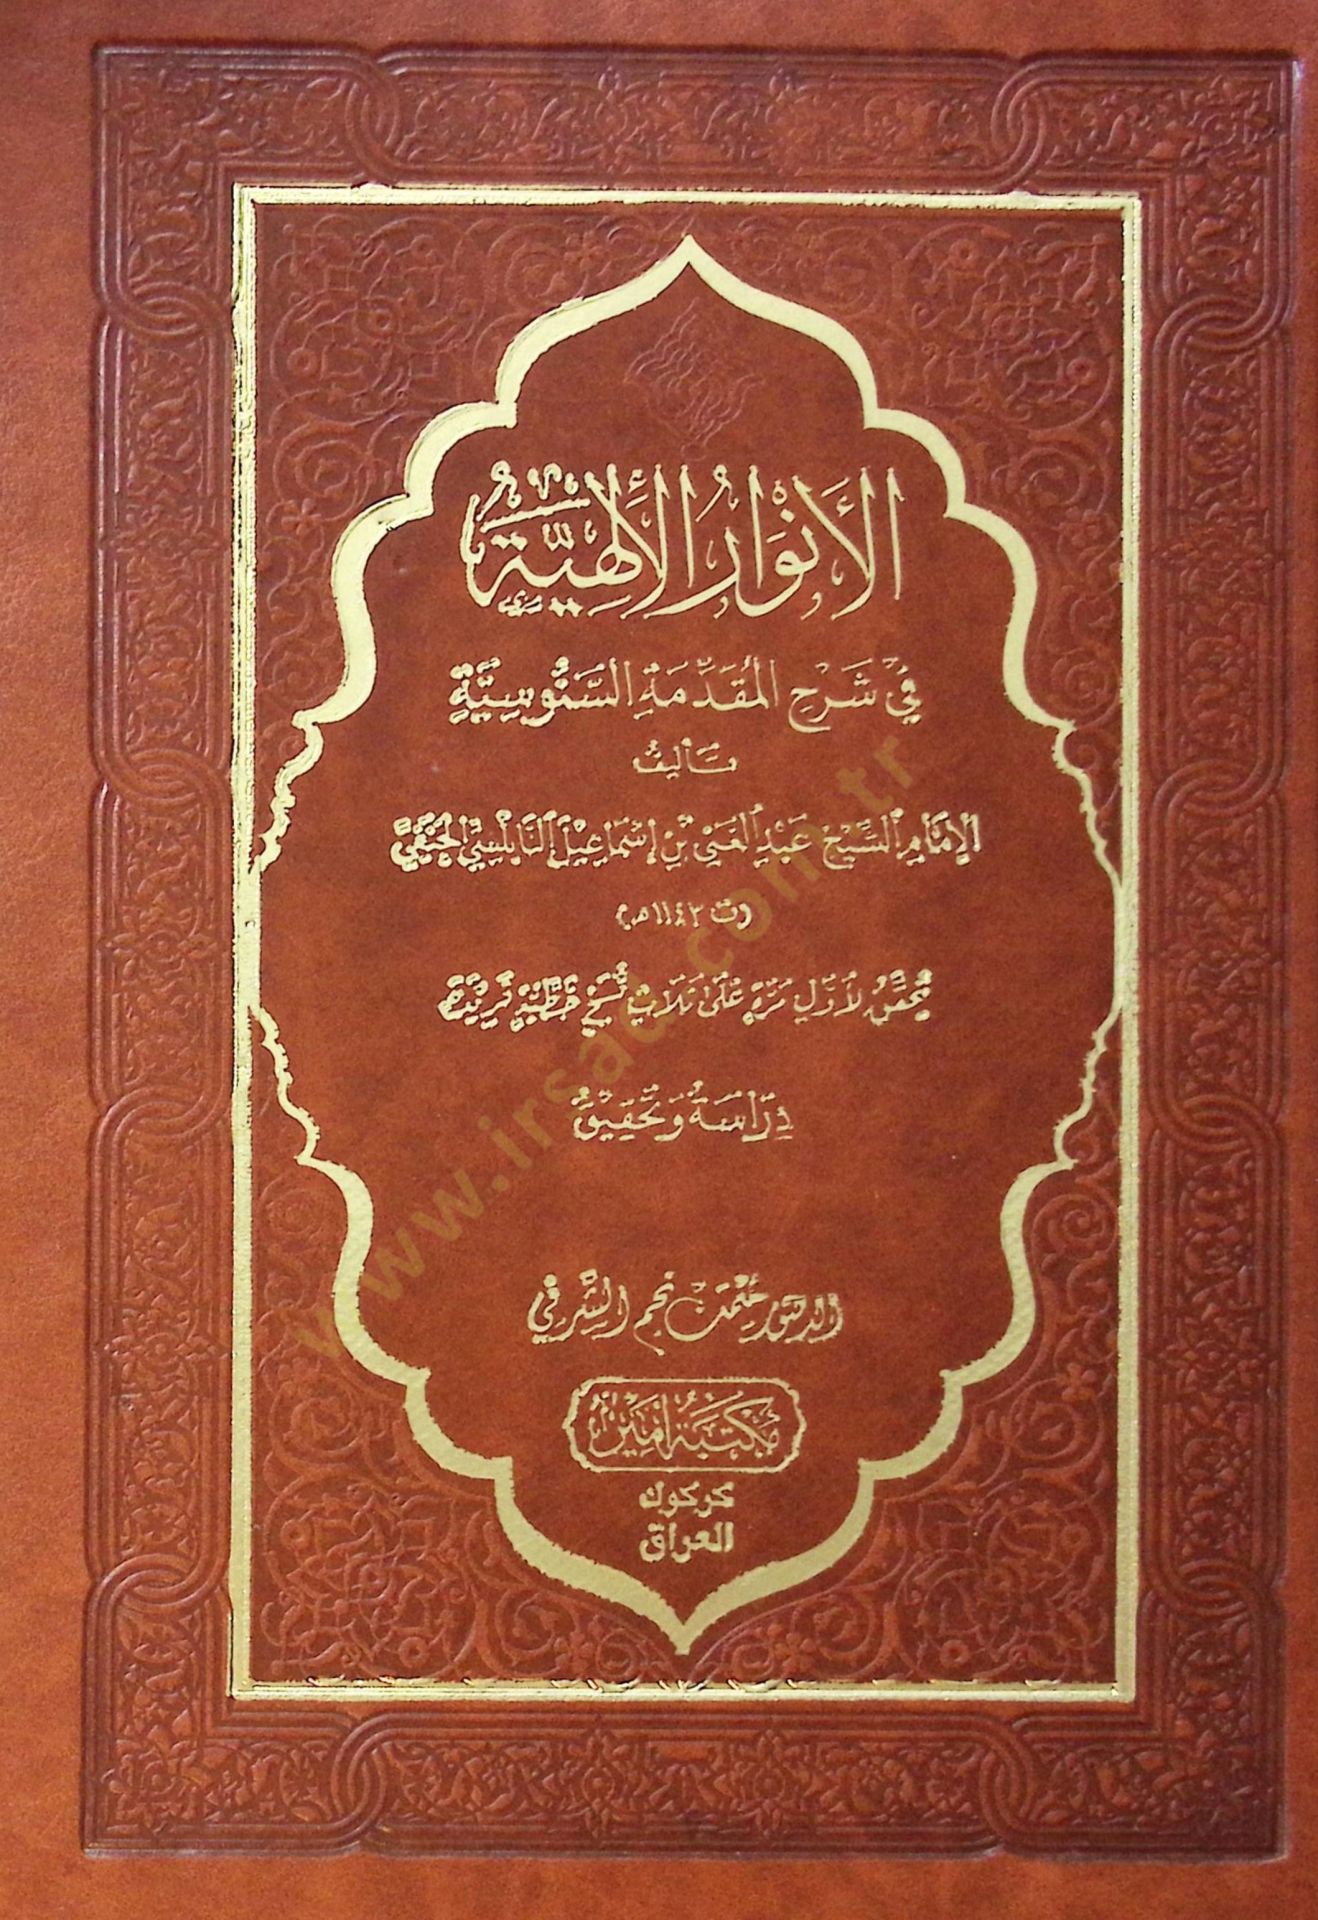 الأَنْوَارُ الإِلَهِيَّةُ
فِي شَرْحِ المُقَدِّمَةِ السَّنُوسِيَّةِ
تأليف
الإِمَامِ الشَّيْخِ عَبْدِ الغَنِي بْنِ إِسْمَاعِيلَ النَّابُلُسِيِّ الحَنَفِيِّ
(ت ١١٤٣هـ)
يُحَقَّقُ لِأَوَّلِ مَرَّةٍ عَلَى ثَلَاثِ نُسَخٍ خَطِّيَّةٍ فَرِيدَةٍ
دِرَاسَةُ وَتَحْقِيقُ
الدكتور نجم الشرفي
مَكْتَبَةُ أَمِيرٍ
كركوك
العراق
www.irsad.com.tr